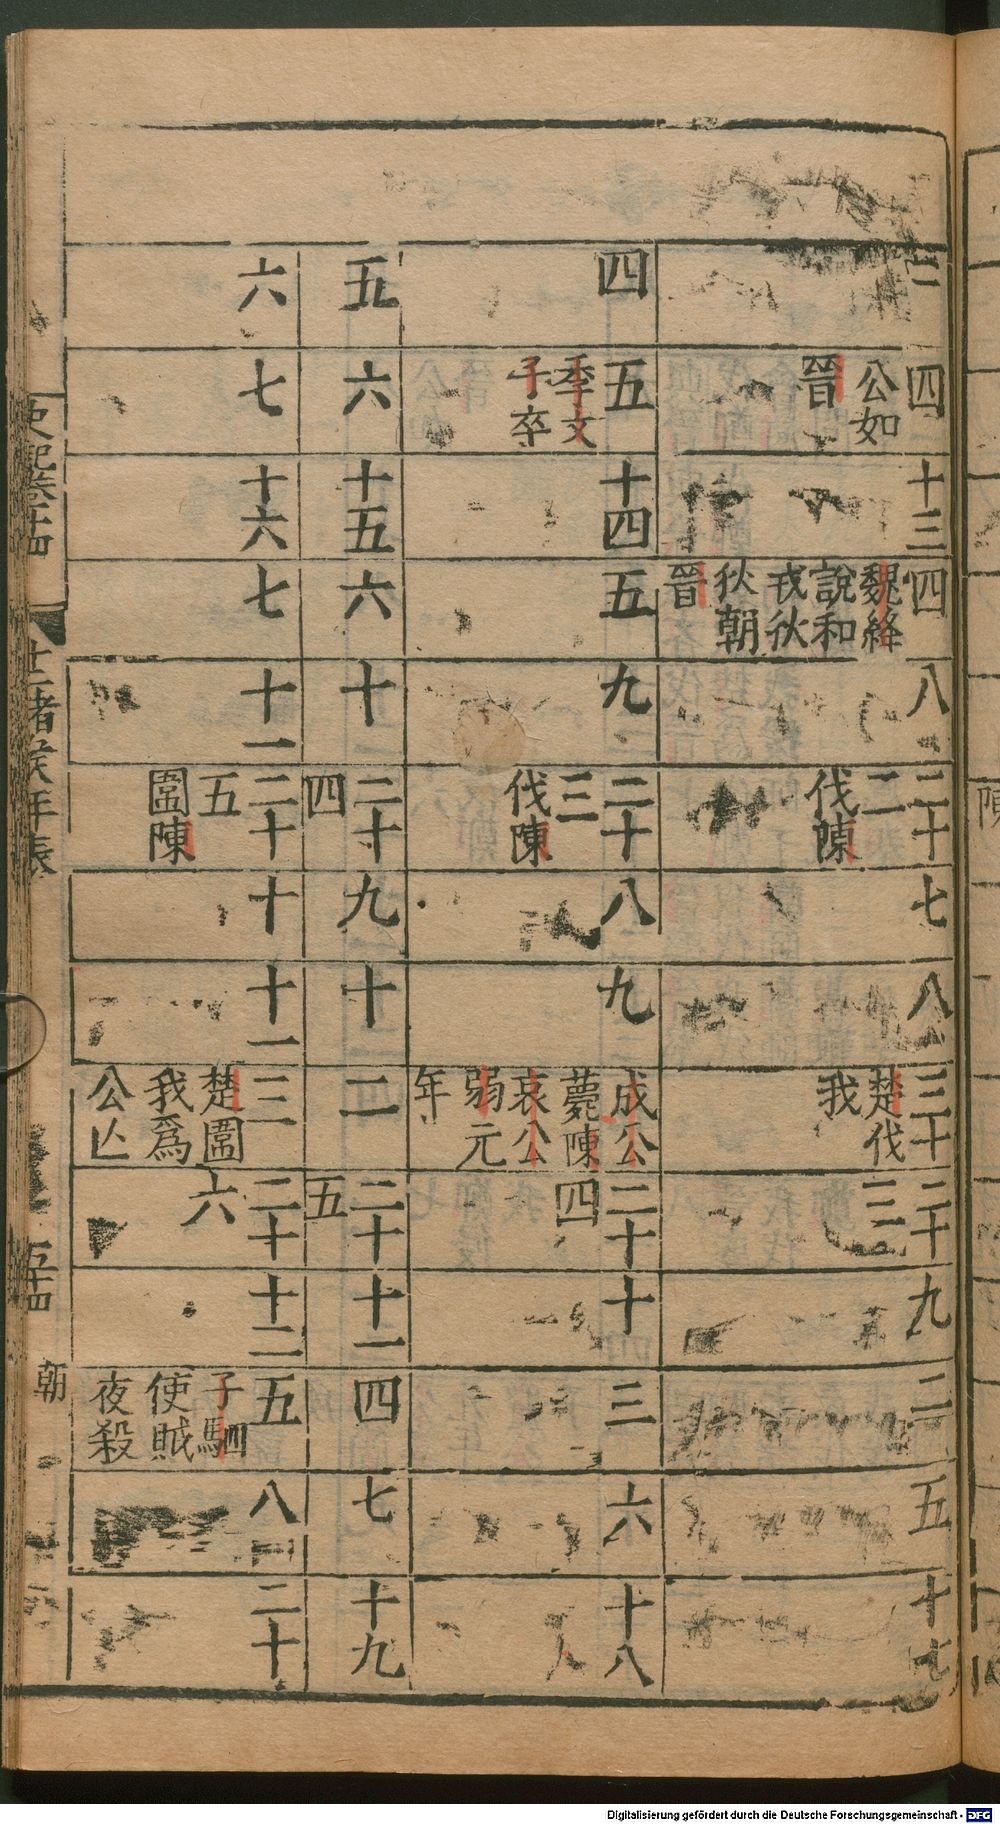 三
四
公如
晉
十三
四
魏絳
說和
戎狄
狄朝
晉
八
二十
二
伐陳
七
八
三十
楚伐
我
二十
三
九
二
五
十七
四
五
季文
子卒
十四
五
九
二十
三
伐陳
八
九
成公
薨陳
哀公
弱元
年
二十
四
十
三
六
十八
五
六
十五
六
十
二十
四
九
十
二
二十
五
十一
四
七
十九
六
七
十六
七
十一
二十
五
圍陳
十
十一
三
楚圍
我爲
公亾
二十
六
十二
五
子駟
使賊
夜殺
八
二十
史記卷十四
十二諸侯年表
五十四
朝
Digitalisierung gefördert durch die Deutsche Forschungsgemeinschaft - DFG